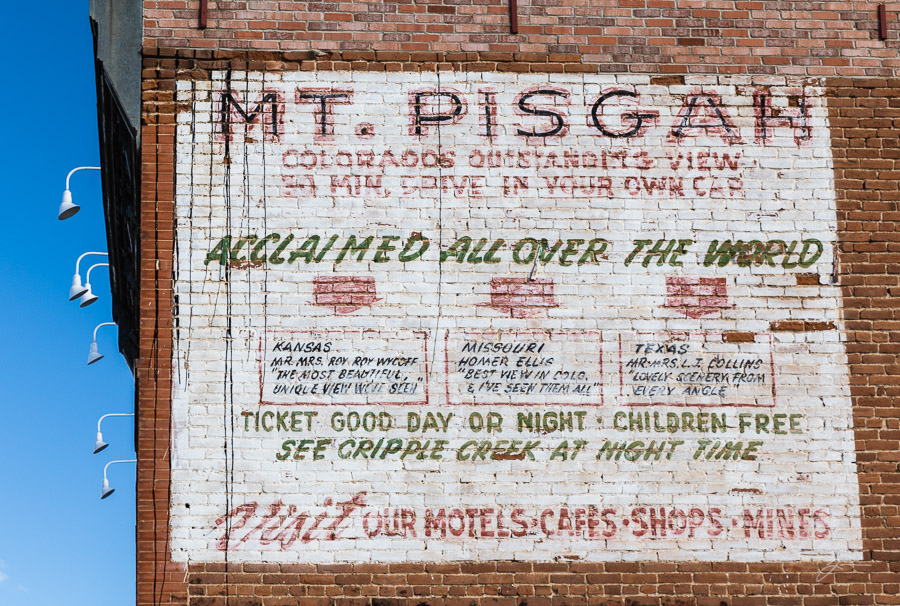 MT. PISGAH
COLORADOS OUTSTANDING VIEW
MIN. DRIVE IN YOUR OWN CAR
ACCLAIMED ALL OVER THE WORLD
KANSAS
MR. MRS. ROY ROY WYCOFF
"THE MOST BEAUTIFUL,
UNIQUE VIEW WE'VE SEEN"
MISSOURI
HOMER ELLIS
"BEST VIEW IN COLO.
& I'VE SEEN THEM ALL"
TEXAS
MR. MRS. L.J. COLLINS
LOVELY SCENERY FROM
EVERY ANGLE
TICKET GOOD DAY OR NIGHT · CHILDREN FREE
SEE CRIPPLE CREEK AT NIGHT TIME
Visit OUR MOTELS · CAFES · SHOPS · MINES